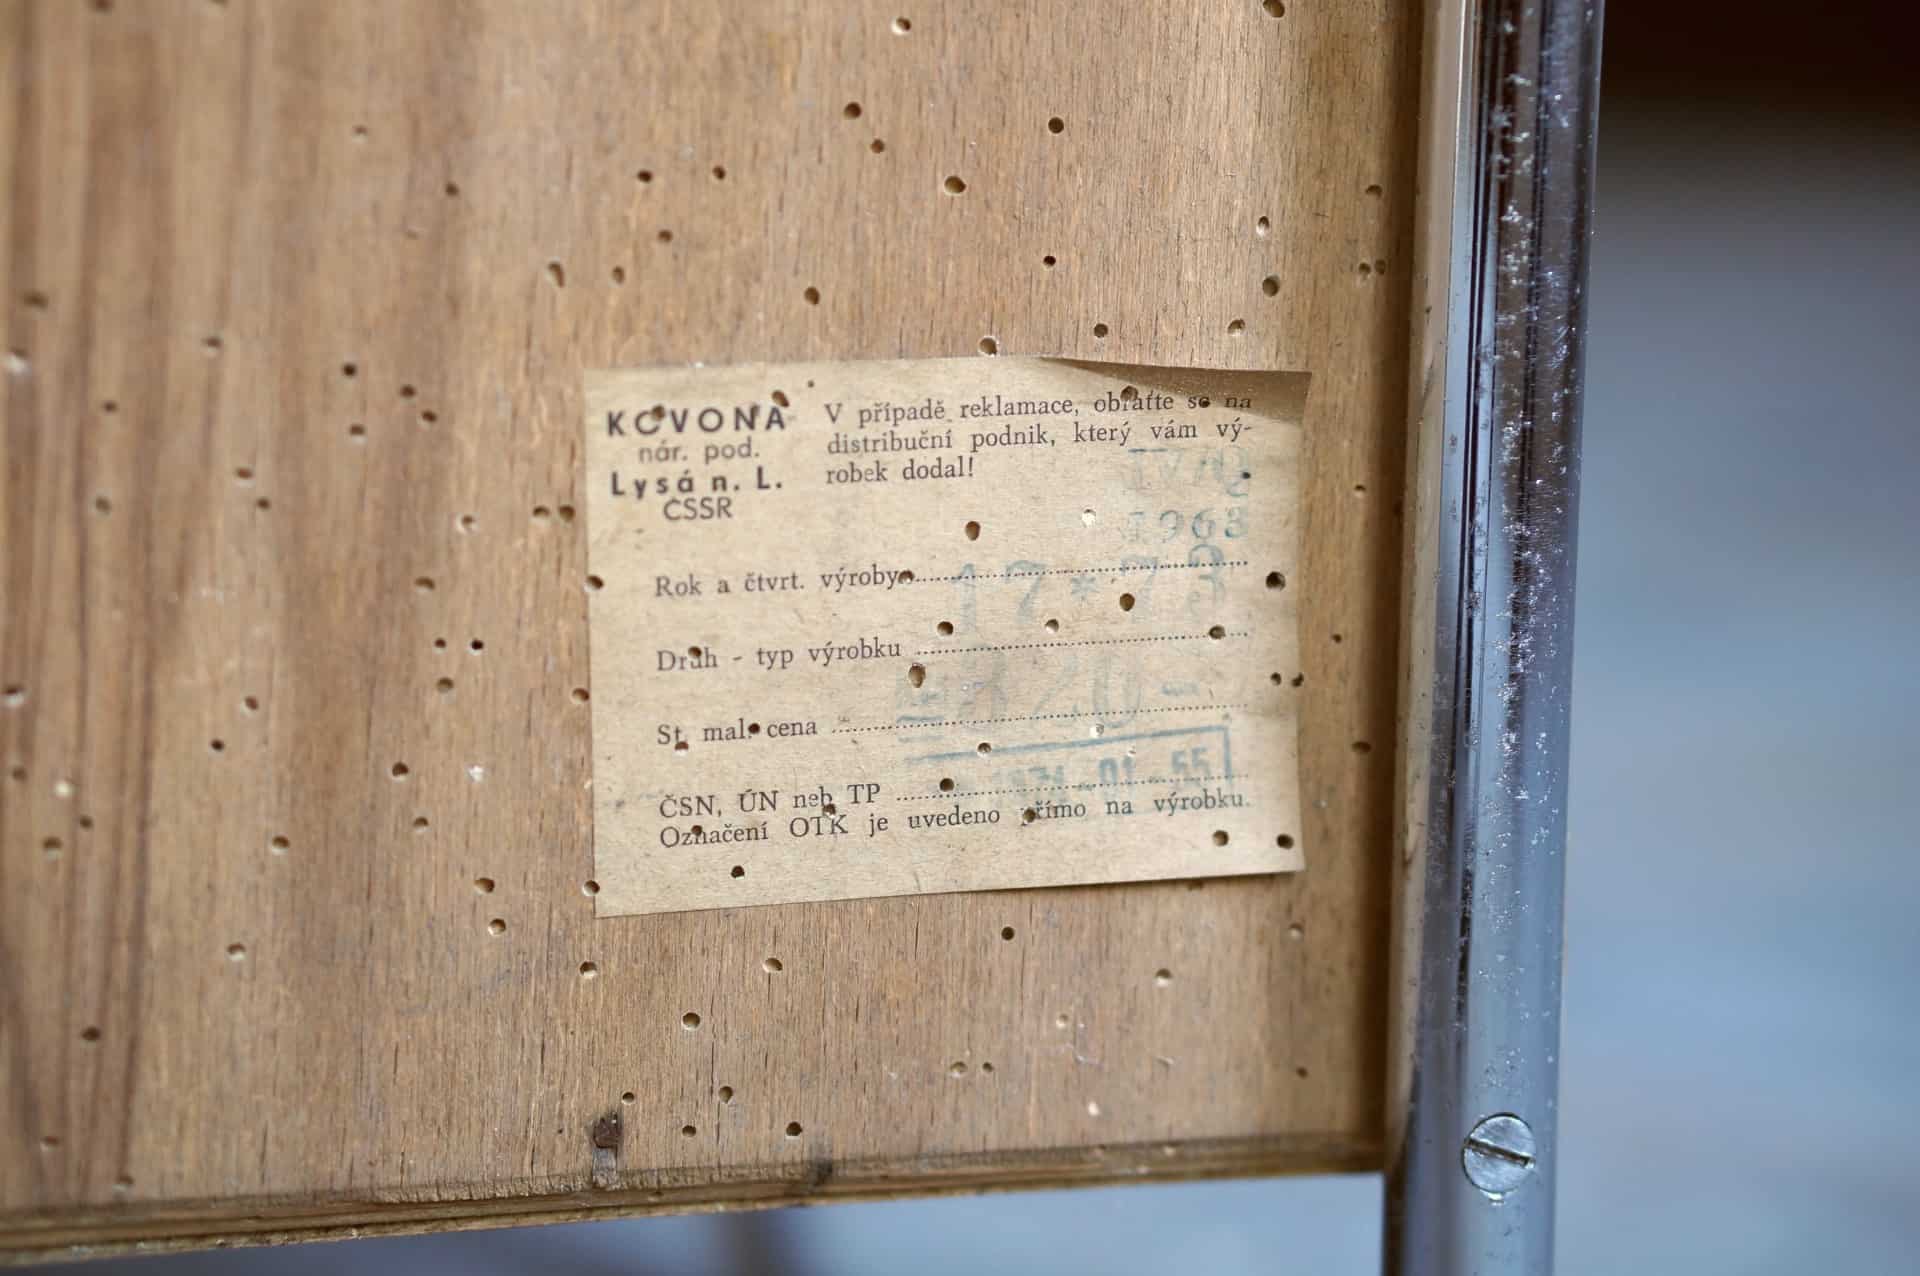 KOVONA
nár. pod.
Lysá n. L.
ČSSR
V případě reklamace, obraťte se na
distribuční podnik, který vám vý-
robek dodal!
1963
Rok a čtvrt. výroby
17*73
Druh - typ výrobku
820-
St. mal. cena
01-55
ČSN, ÚN neb TP
Označení OTK je uvedeno přímo na výrobku.